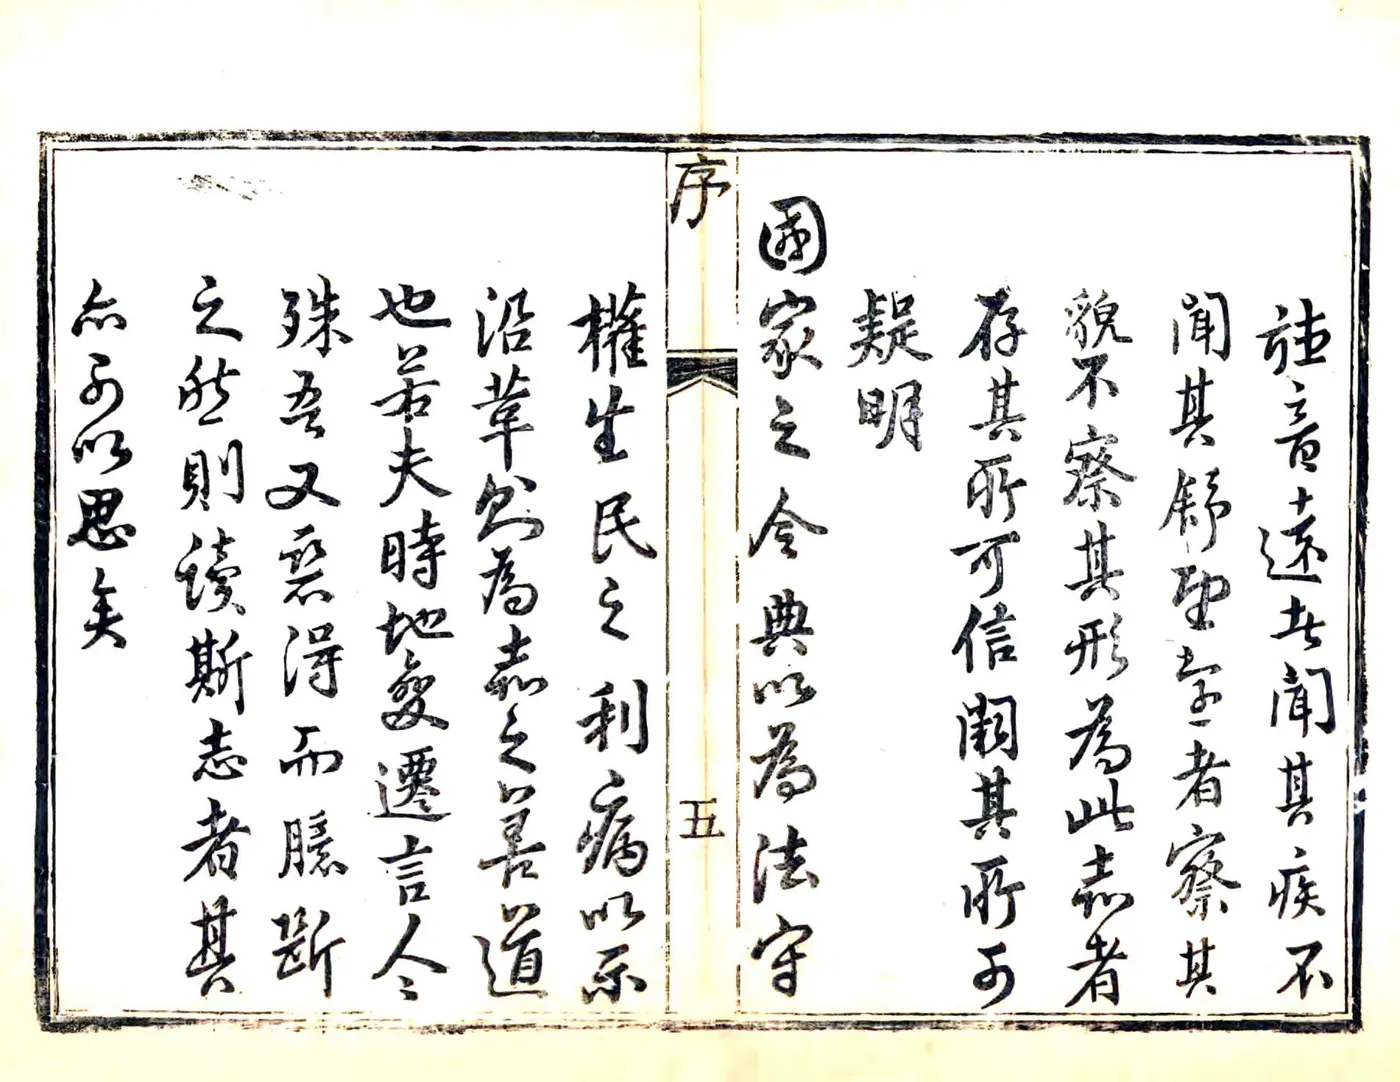 聽音遠者聞其疾不
聞其舒望者察其
貌不察其形為此志者
存其所可信闕其所可
疑明
國家之令典以為法守
序
五
權生民之利病以示
沿革則為志之善道
也若夫時地變遷言人〻
殊吾又惡得而臆斷
之然則讀斯志者其
亦可以思矣